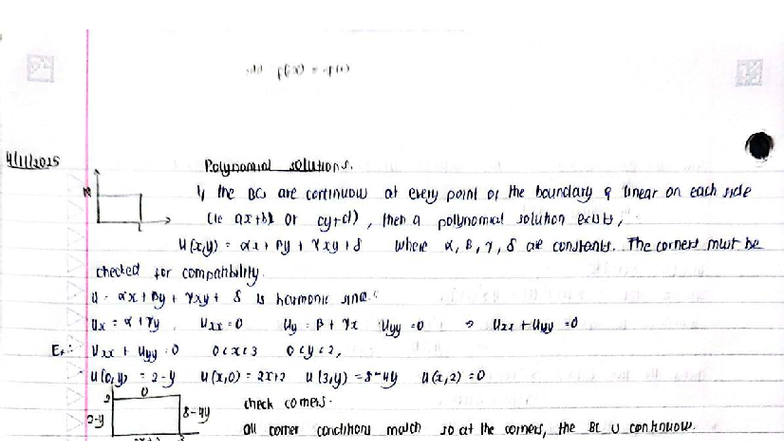 4/11/2025
Polynomial solutions.
If the BCs are continuous at every point of the boundary & linear on each side
(ie ax+b or cy+d), then a polynomial solution exists,
u(x,y) = αx + βy + γxy + δ where α, β, γ, δ are constants. The corners must be
checked for compatibility.
u = αx + βy + γxy + δ is harmonic since:
Ux = α + γy, Uxx = 0 Uy = β + γx Uyy = 0 ⇒ Uxx + Uyy = 0
Ex: Uxx + Uyy = 0 0<x<3 0<y<2,
U(0,y) = 2-y U(x,0) = 2x+2 U(3,y) = 8-4y U(x,2) = 0
2 0 check corners.
2-y 8-4y all corner conditions match so at the corners, the BC is continuous.